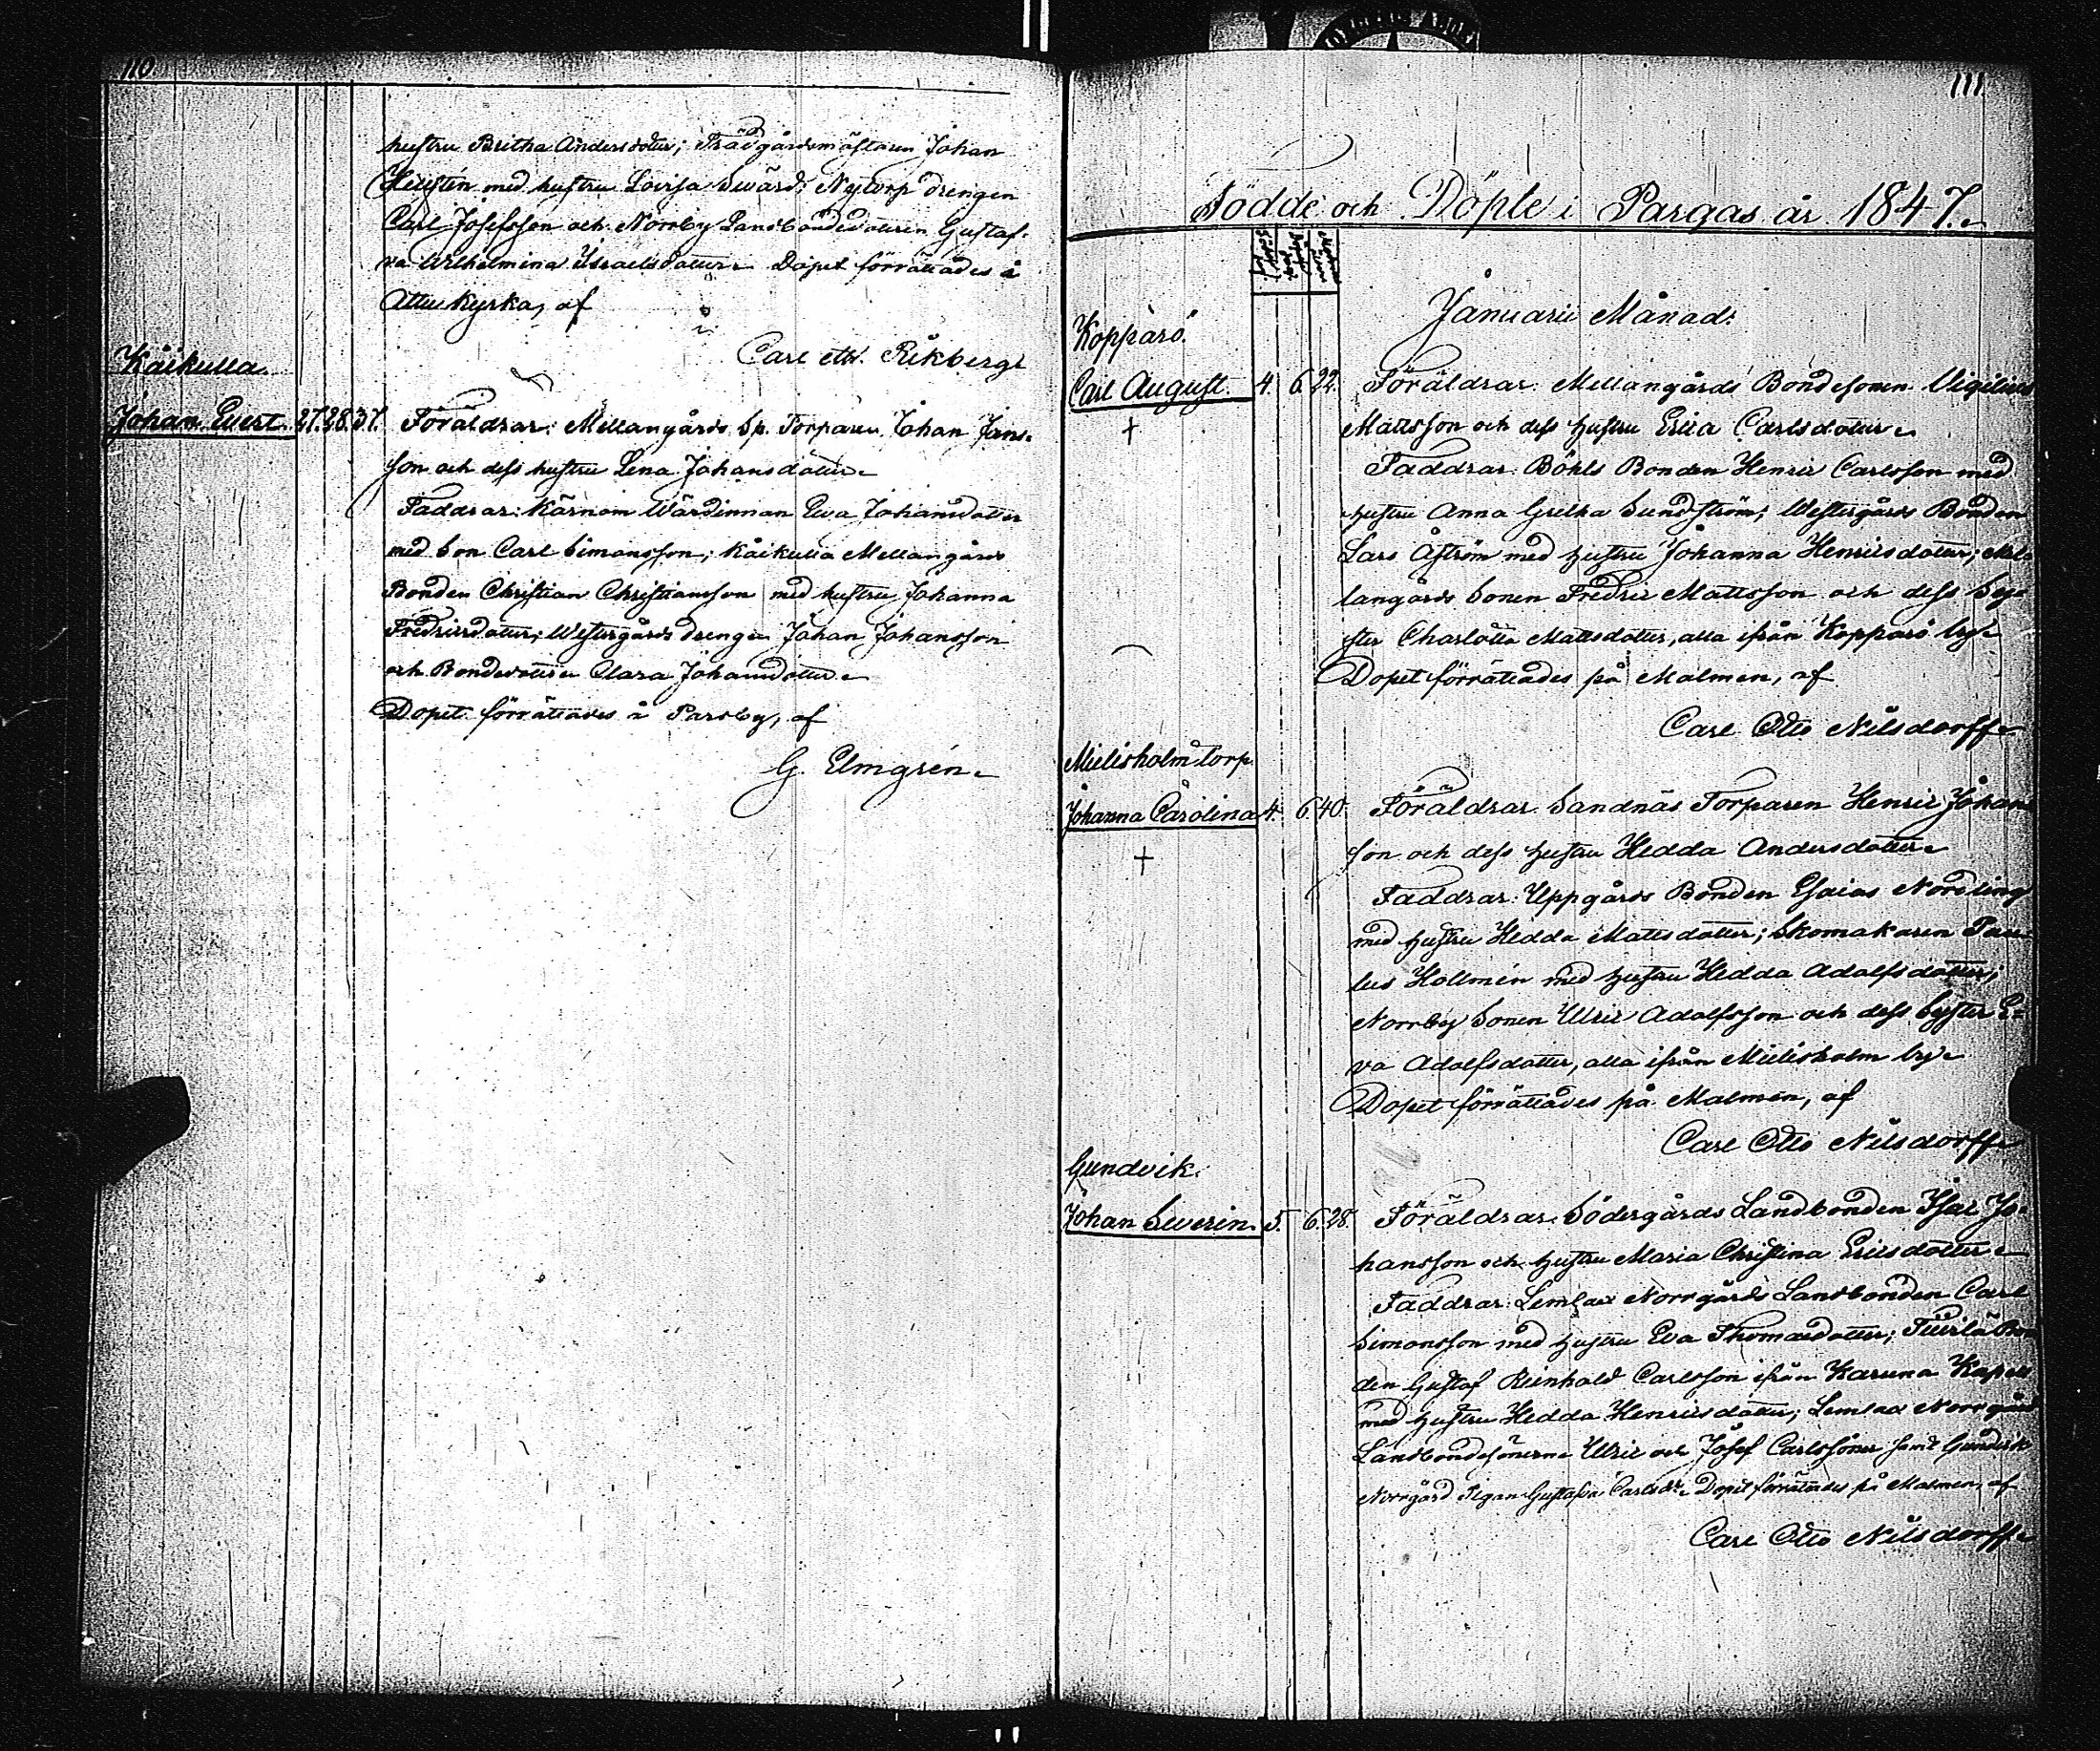 110
hustru Britha Andersdotter; Trädgårdsmästaren Johan
Hellstén med hustru Lovisa Swärd; Nytorp drengen
Carl Josefsson och Norrby Landbondedottren Gustaf-
va Wilhelmina Israelsdotter. Dopet förrättades i
Attu Kyrka, af
Carl Rikberg
Käikulla
Johan Evert. 27. 28. 37. Föräldrar: Mellangårds Sp. Torparen Johan Jans-
son och dess hustru Lena Johansdotter.
Faddrar: Kärnom Wärdinnan Eva Johansdotter
med Son Carl Simonsson; Käikulla Mellangårds
Bonden Christian Christiansson med hustru Johanna
Fredricsdotter; Westergårds drengen Johan Johansson
och Bondedottren Clara Johansdotter.
Dopet förrättades i Parsby, af
G. Elmgrén.
111
Födde och Döpte i Pargas år 1847.
Januarii Månad.
Kopparö.
Carl August. 4. 6. 22. Föräldrar: Mellangårds Bondesonen Vigilius
Mattsson och dess hustru Erica Carlsdotter.
Faddrar: Böhls Bonden Henric Carlsson med
hustru Anna Gretha Sundström; Westergårds Bonden
Lars Åström med hustru Johanna Henricsdotter; Mel-
langårds Sonen Fredric Mattsson och dess Sy-
ster Charlotta Mattsdotter, alla ifrån Kopparö by.
Dopet förrättades på Malmen, af
Carl Otto Nilsdorff.
Mielisholm torp.
Johanna Carolina 4. 6. 40. Föräldrar: Sandnäs Torparen Henric Johans-
son och dess hustru Hedda Andersdotter.
Faddrar: Uppgårds Bonden Esaias Nordling
med hustru Hedda Mattsdotter; Skomakaren Pau-
lus Hollmén med hustru Hedda Adolfsdotter;
Norrby Sonen Ulric Adolfsson och dess Syster E-
va Adolfsdotter, alla ifrån Mielisholm by.
Dopet förrättades på Malmen, af
Carl Otto Nilsdorff.
Gundvik.
Johan Severin. 5. 6. 28. Föräldrar: Södergårds Landbonden Isac Jo-
hansson och hustru Maria Christina Ericsdotter.
Faddrar: Lemlax Norrgårds Landbonden Carl
Simonsson med hustru Eva Thomasdotter; Bon
den Gustaf Reinhold Carlsson ifrån Karuna Kapell
med hustru Hedda Henricsdotter; Lemlax Norrgård
Landbondesönerne Ulric och Josef Carlssöner samt Gundvik
Norrgård Pigan Gustafva Carlsdr. Dopet förrättades på Malmen, af
Carl Otto Nilsdorff.